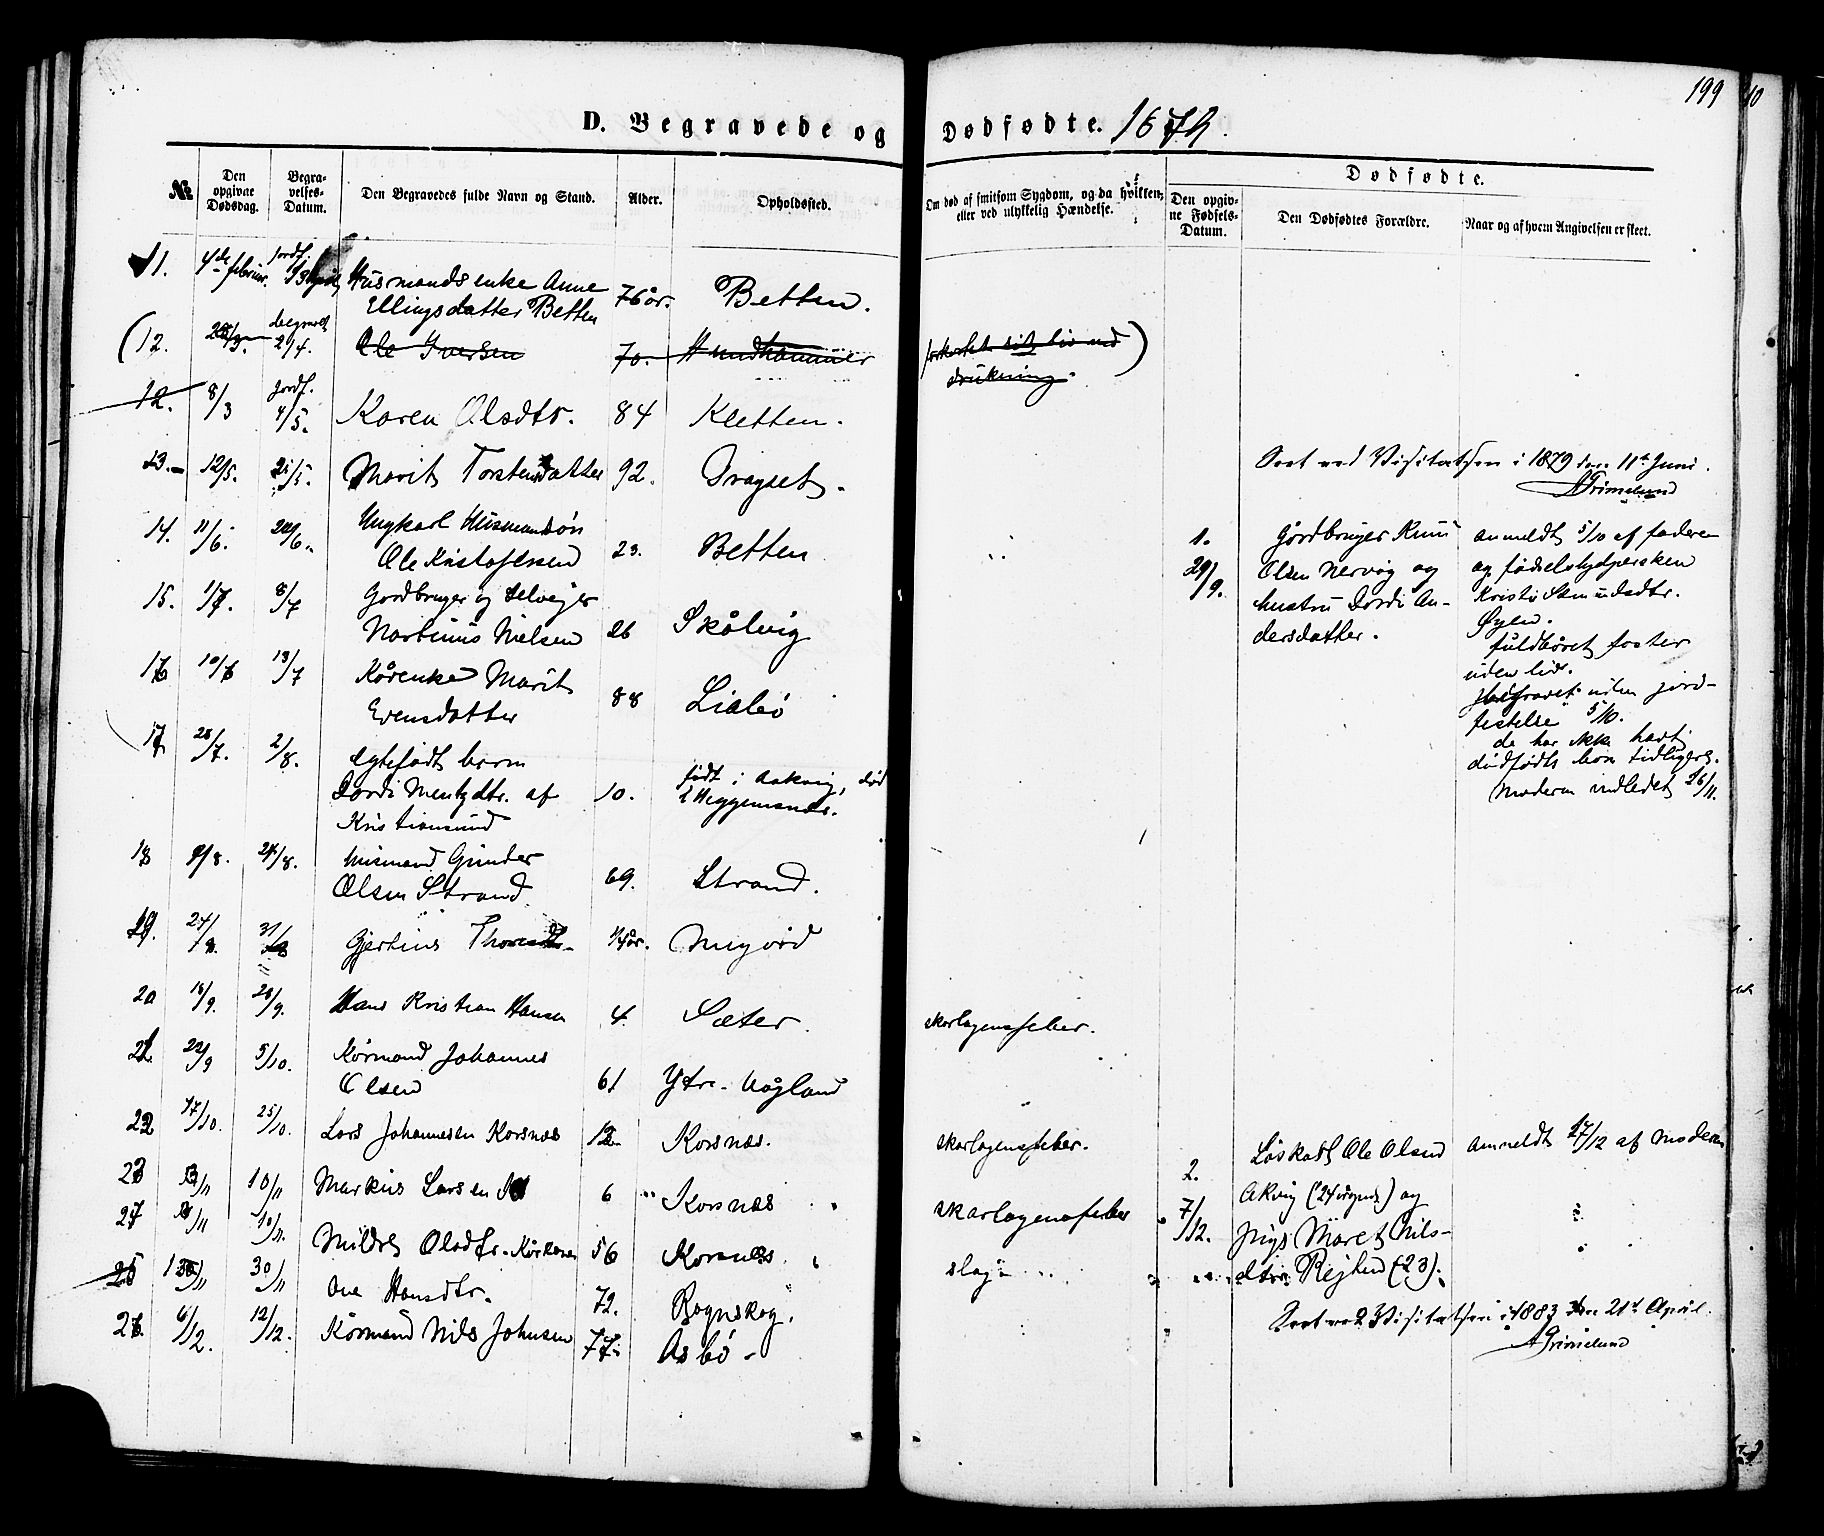 199
D. Begravede og Dødfødte. 1879.
№
Den opgivne Dødsdag.
Begravelses-Datum.
Den Begravedes fulde Navn og Stand.
Alder.
Opholdssted.
Om død af smitsom Sygdom, og da hvilken; eller ved ulykkelig Hændelse.
Dødfødte.
Den opgivne Fødsels-Datum.
Den Dødfødtes Forældre.
Naar og af hvem Angivelsen er skeet.
11. 4de februar. jordf. Husmands enke Anne
Ellingsdatter Betten 76 år. Betten.
(12. 2/4. Ole Iversen 70. Hundhammer forkortet sit liv ved )
drukning.
12. 8/3 jordf. 4/5. Karen Olsdtr. 84 Kletten.
13. 12/5. 21/5. Marit Torstensdatter 92. Dragset.
Seet ved Visitatsen i 1879 den 11te Juni.
AGrimelund
14. 11/6. 20/6. Ungkarl Husmandsøn
Ole Kristofersen 23. Betten
15. 1/7. 8/7 Gordbruger og selvejer
Martinus Nielsen 26 Skålvig
16 10/6 13/7 Kårenke Marit
Evensdatter 88 Lialeö
17 28/7. 2/8. egtefødt barn
Dordi Mentzdtr. af 10. født i Aakvig, død
Kristiansund i Heggemsnes.
18 9/8. 24/8. husmand Gunder
Olsen Strand 69. Strand.
19. 24/8. 31/8 Gjertine 14 år.
20 18/9. 28/9. Hans Kristian Hansen 4. Sæter. skarlagensfeber.
21. 22/9 5/10. Kårmand Johannes
Olsen 61 Ytre-Vågland
22 17/10. 25/10. Lars Johannesen Korsnæs 12 Korsnæs. skarlagensfeber.
23 3/11 10/11 Markus Larsen 6 " Korsnæs skarlagensfeber
24 /11 10/11. Mildri Olsdtr. 56 Korsnæs. slag
25 /11 30/11 Ane Hansdtr. 72. Rognskog.
26. 6/12. 12/12. Kårmand Nils Johnsen 77. Asbö
1.
29/9.
Gårdbruger Knut
Olsen Nervåg og
hustru Dordi An-
dersdatter.
anmeldt 5/10 af faderen
og fødselshjelpersken
Kristi
Øyen.
fuldbåret foster
uden liv.
begravet uden jord-
festelse 5/10.
de har ikke havt
dødfødte børn tidligere.
Moderen indledet 16/11.
2.
7/12.
Løskarl Ole Olsen
Akvig (24 år) og
pige Maret Nils-
dtr. (23).
anmeldt 17/12 af moderen
Seet ved Visitatsen i 1883 den 21de April.
AGrimelund